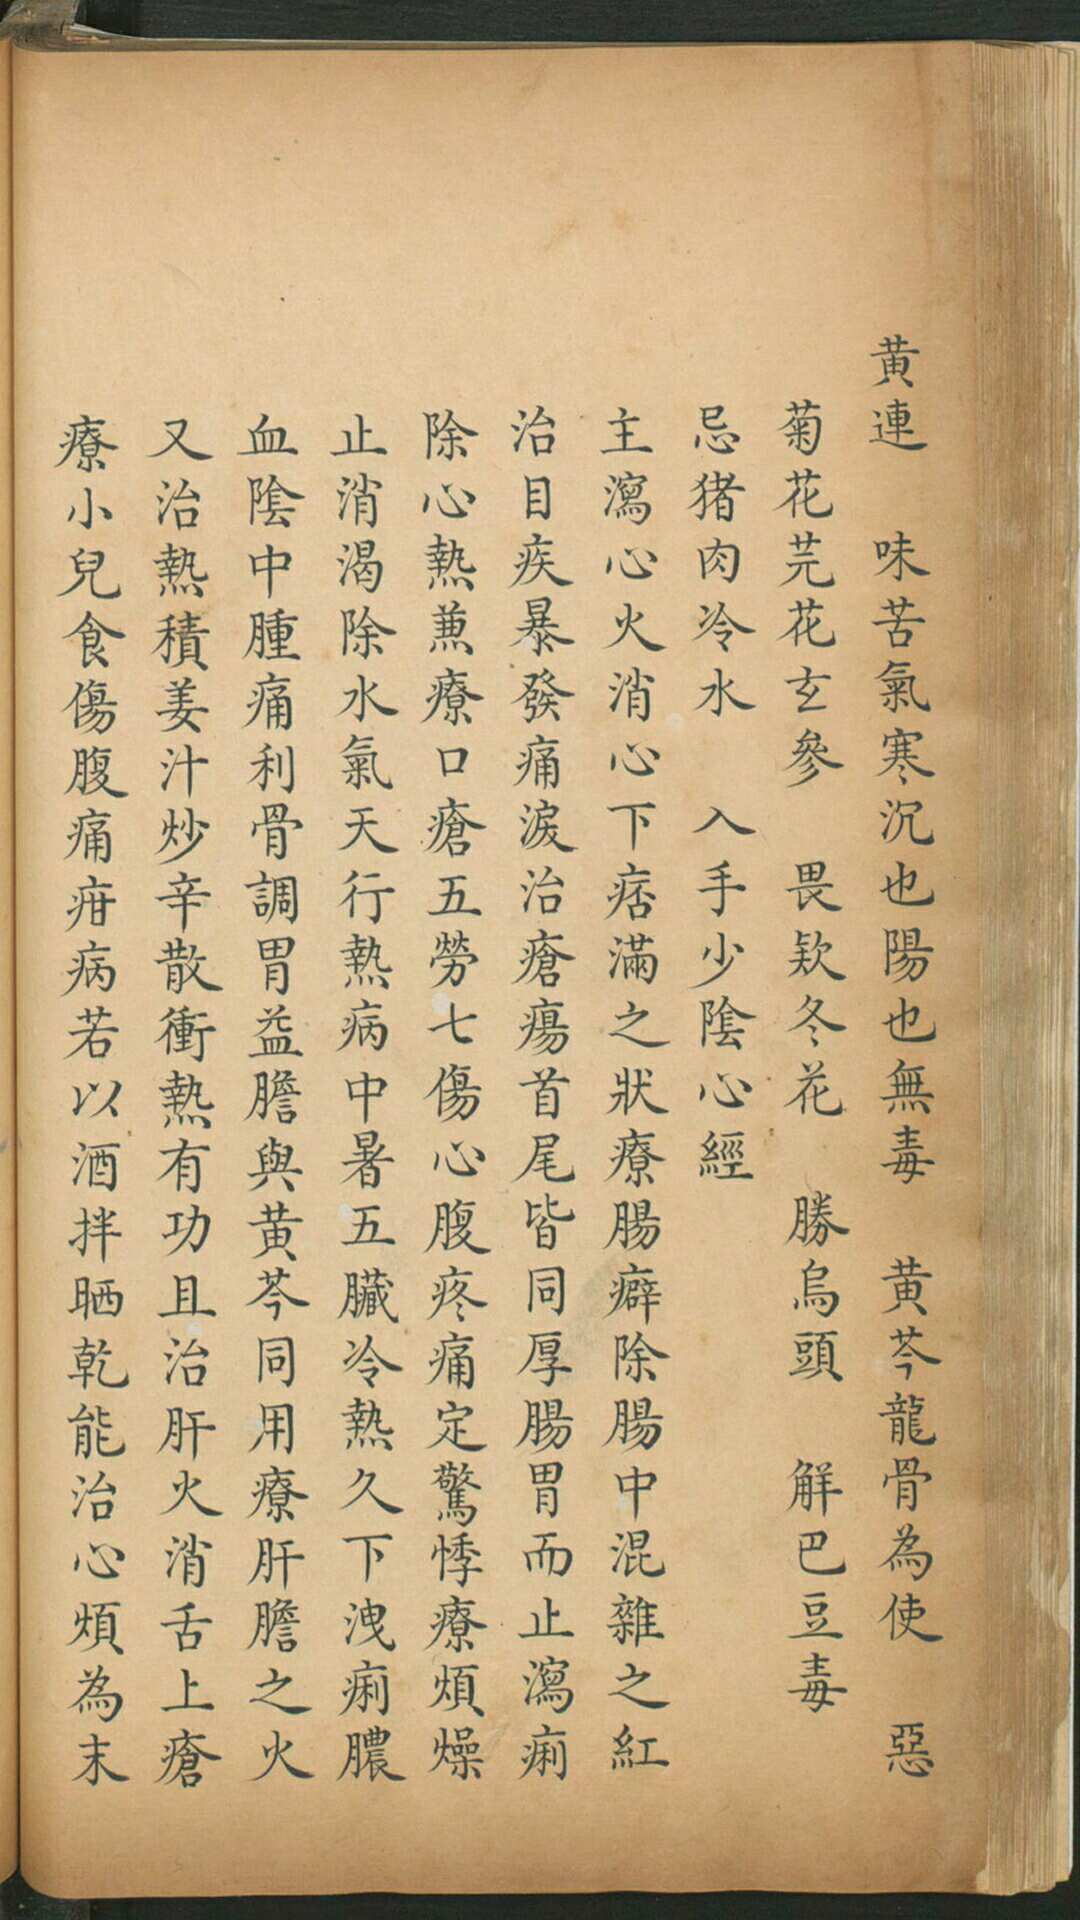 黄連　味苦氣寒沉也陽也無毒　黄芩龍骨為使　惡
菊花芫花玄參　畏欵冬花　勝烏頭　解巴豆毒
忌猪肉冷水　入手少陰心經
主瀉心火消心下痞滿之狀療腸癖除腸中混雜之紅
治目疾暴發痛淚治瘡瘍首尾皆同厚腸胃而止瀉痢
除心熱兼療口瘡五勞七傷心腹疼痛定驚悸療煩燥
止消渴除水氣天行熱病中暑五臟冷熱久下洩痢膿
血陰中腫痛利骨調胃益膽與黄芩同用療肝膽之火
又治熱積姜汁炒辛散衝熱有功且治肝火消舌上瘡
療小兒食傷腹痛疳病若以酒拌晒乾能治心煩為末